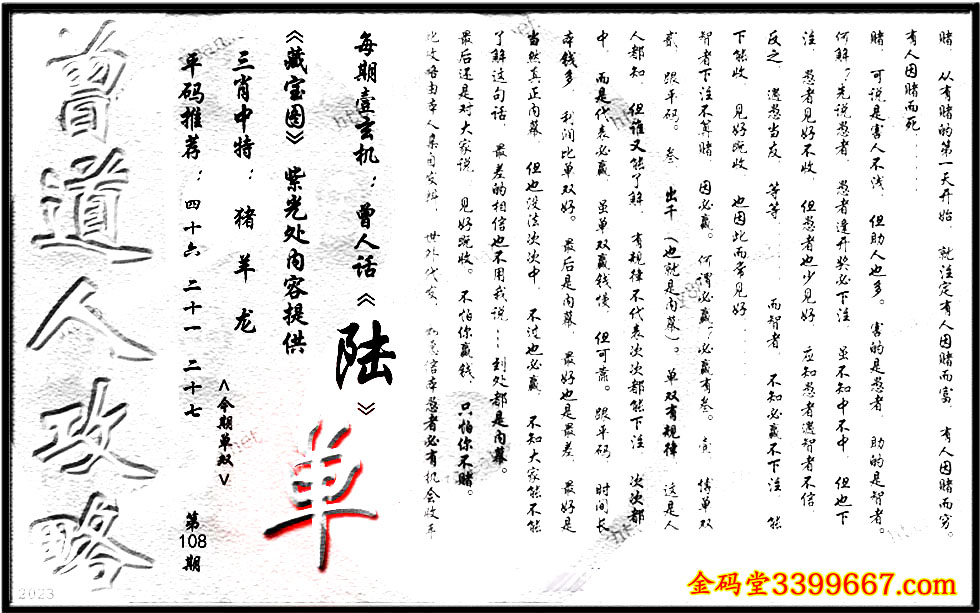 赌、从有赌的第一天开始、就注定有人因赌而富、有人因赌而穷。
有人因赌而死……
赌、可说是害人不浅、但助人也多。害的是愚者、助的是智者。
何解?先说愚者、愚者逢开奖必下注、虽不知中不中、但也下
注、愚者见好不收、但愚者也少见好、应知愚者遇智者不信、
反之、遇愚当友、等等……而智者、不知必赢不下注、能
下能收、见好就收、也因此而常见好……
智者下注不算赌、因必赢。何谓必赢?必赢有叁。壹、猜单双
贰、跟平码。叁、出千(也就是内幕)。单双有规律、这是人
人都知、但谁又能了解、有规律不代表次次都能下注、次次都
中、而是代表必赢、虽单双赢钱慢、但可靠。跟平码、时间长
本钱多、利润比单双好。最后是内幕、最好也是最差、最好是
当然真正内幕、但也没法次次中、不过也必赢、不知大家能不能
了解这句话、最差的相信也不用我说……到处都是内幕。
最后还是对大家说、见好就收。不怕你赢钱、只怕你不赌。
每期壹玄机:曾人话《陆》
《藏宝图》紫光处内容提供
三肖中特:猪 羊 龙
平码推荐:四十六 二十一 二十七
<今期单双>
单
第108期
曾道人攻略
2023
金码堂3399667.com